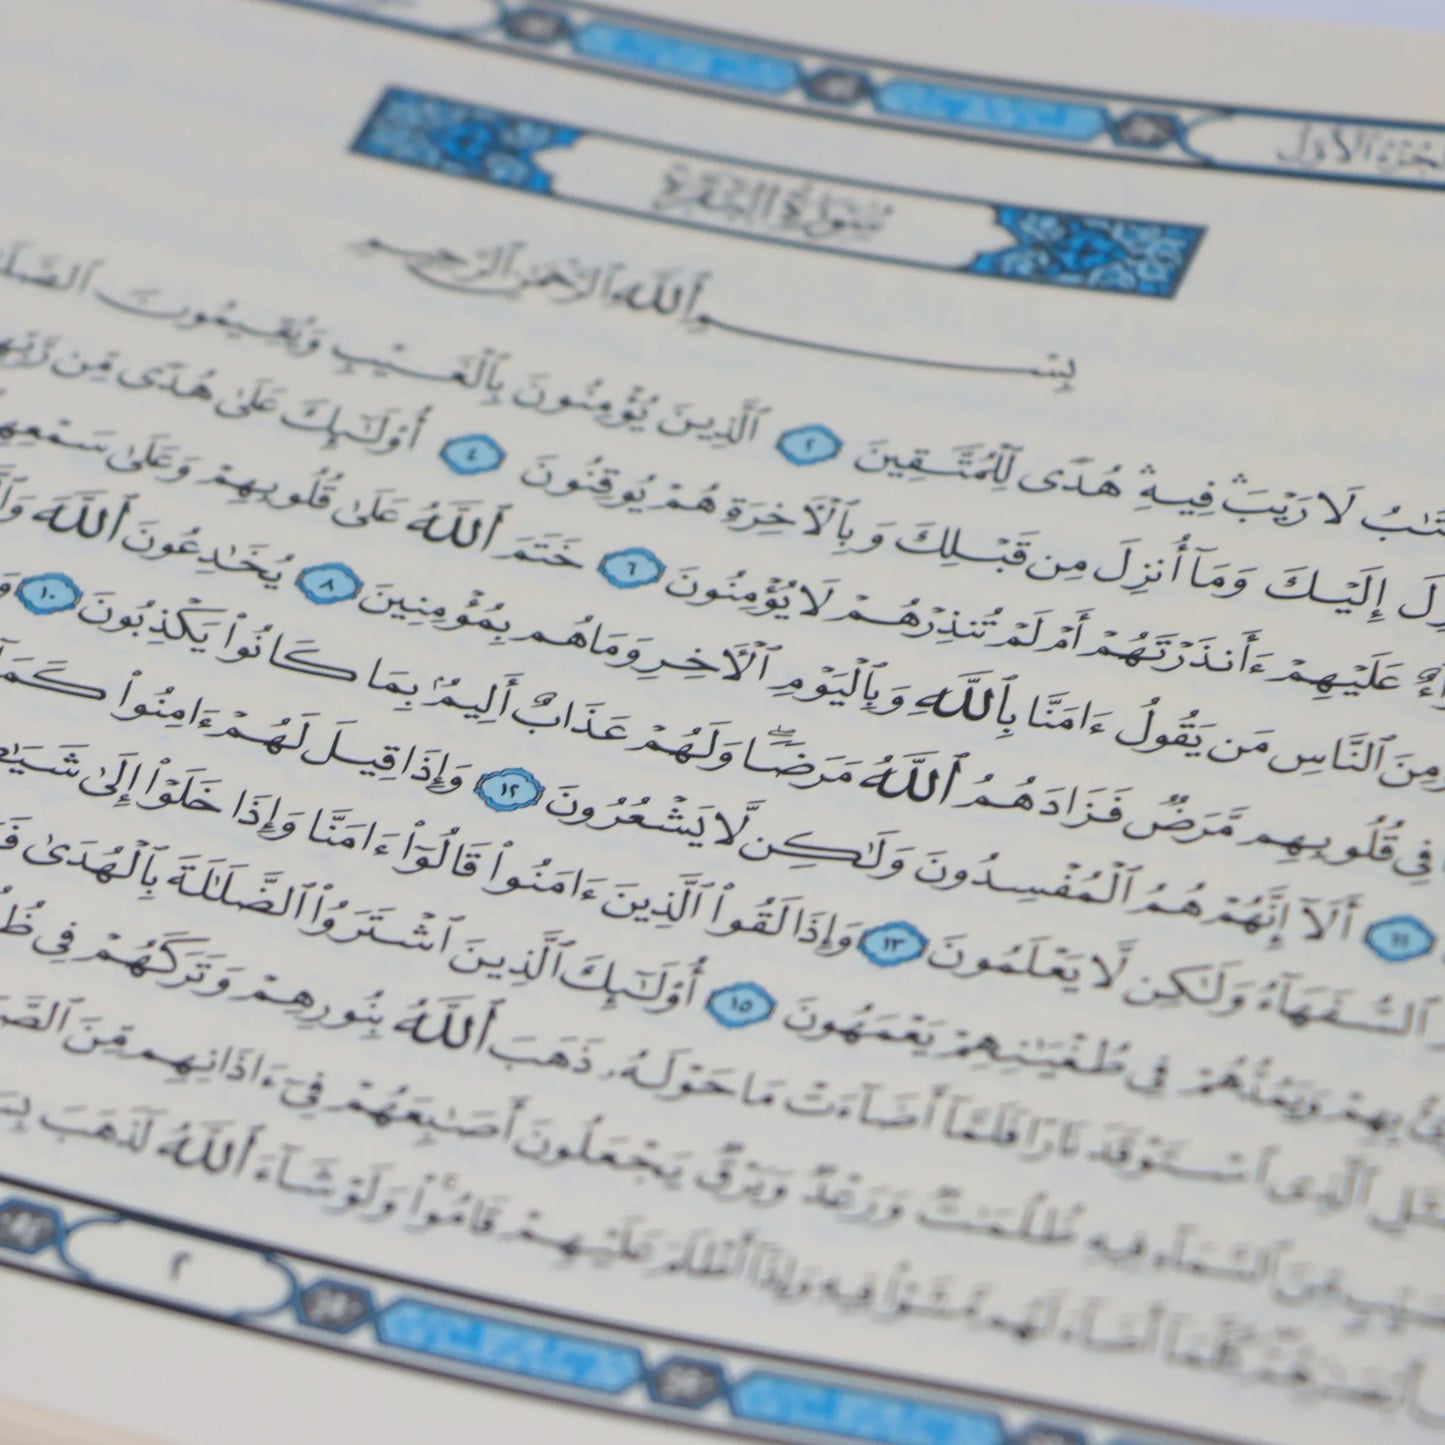 الجزء الأول
سورة البقرة
بسم الله الرحمن الرحيم
لَا رَيْبَ ۛ فِيهِ ۛ هُدًى لِّلْمُتَّقِينَ ٢ ٱلَّذِينَ يُؤْمِنُونَ بِٱلْغَيْبِ وَيُقِيمُونَ
إِلَيْكَ وَمَآ أُنزِلَ مِن قَبْلِكَ وَبِٱلْأَخِرَةِ هُمْ يُوقِنُونَ ٤ أُو۟لَـٰٓئِكَ عَلَىٰ هُدًى مِّن
عَلَيْهِمْ ءَأَنذَرْتَهُمْ أَمْ لَمْ تُنذِرْهُمْ لَا يُؤْمِنُونَ ٦ خَتَمَ ٱللَّهُ عَلَىٰ قُلُوبِهِمْ وَعَلَىٰ
وَمِنَ ٱلنَّاسِ مَن يَقُولُ ءَامَنَّا بِٱللَّهِ وَبِٱلْيَوْمِ ٱلْأَخِرِ وَمَا هُم بِمُؤْمِنِينَ ٨ يُخَـٰدِعُونَ ٱللَّهَ
فِى قُلُوبِهِم مَّرَضٌ فَزَادَهُمُ ٱللَّهُ مَرَضًا ۖ وَلَهُمْ عَذَابٌ أَلِيمٌۢ بِمَا كَانُوا۟ يَكْذِبُونَ ١٠
١١ أَلَآ إِنَّهُمْ هُمُ ٱلْمُفْسِدُونَ وَلَـٰكِن لَّا يَشْعُرُونَ ١٢ وَإِذَا قِيلَ لَهُمْ ءَامِنُوا۟ كَمَآ
ٱلسُّفَهَآءُ وَلَـٰكِن لَّا يَعْلَمُونَ ١٣ وَإِذَا لَقُوا۟ ٱلَّذِينَ ءَامَنُوا۟ قَالُوٓا۟ ءَامَنَّا وَإِذَا خَلَوْا۟ إِلَىٰ
بِهِمْ وَيَمُدُّهُمْ فِى طُغْيَـٰنِهِمْ يَعْمَهُونَ ١٥ أُو۟لَـٰٓئِكَ ٱلَّذِينَ ٱشْتَرَوُا۟ ٱلضَّلَـٰلَةَ بِٱلْهُدَىٰ
ٱلَّذِى ٱسْتَوْقَدَ نَارًا فَلَمَّآ أَضَآءَتْ مَا حَوْلَهُۥ ذَهَبَ ٱللَّهُ بِنُورِهِمْ وَتَرَكَهُمْ فِى
مِّنَ ٱلسَّمَآءِ فِيهِ ظُلُمَـٰتٌ وَرَعْدٌ وَبَرْقٌ يَجْعَلُونَ أَصَـٰبِعَهُمْ فِىٓ ءَاذَانِهِم مِّنَ
أَبْصَـٰرَهُمْ ۖ كُلَّمَآ أَضَآءَ لَهُم مَّشَوْا۟ فِيهِ وَإِذَآ أَظْلَمَ عَلَيْهِمْ قَامُوا۟ ۚ وَلَوْ شَآءَ ٱللَّهُ لَذَهَبَ
٢